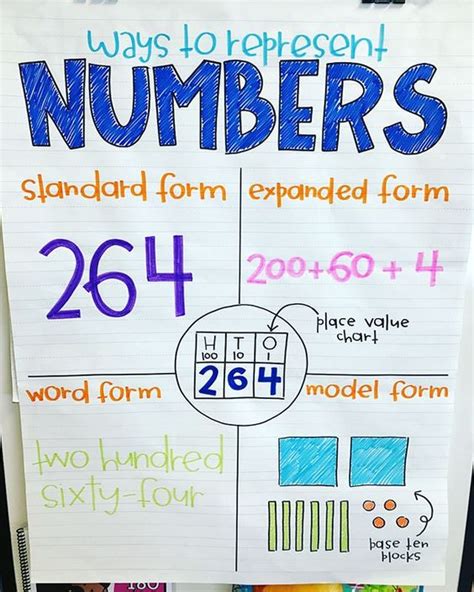 ways to represent
NUMBERS
standard form
264
expanded form
200+60+4
place value
chart
H T O
100 10 1
2 6 4
word form
two hundred
sixty-four
model form
base ten
blocks
180